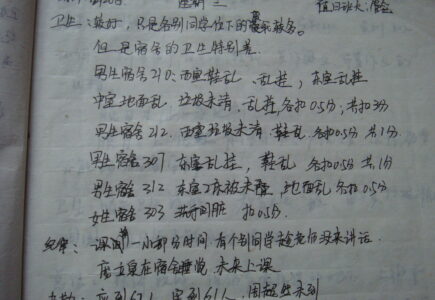 星期三 值日班长:
卫生:较好,只是各别同学位下的较多。
但是宿舍的卫生特别差。
男生宿舍210:西室鞋乱、乱挂,东室乱挂
中室地面乱、垃圾未清、乱挂,各扣0.5分,共扣3分
男生宿舍212.西室垃圾未清.鞋乱.各扣0.5分 共1分.
男生宿舍307 东室乱挂,鞋乱 各扣0.5分 共1分
男生宿舍312 东室2床被未叠,地面乱 各扣0.5分
女生宿舍303 厕所脏 扣0.5分.
纪律:课前一小部分时间.有个别同学趁老师没来讲话.
在宿舍睡觉,未来上课
应到62人,实到61人,周未到